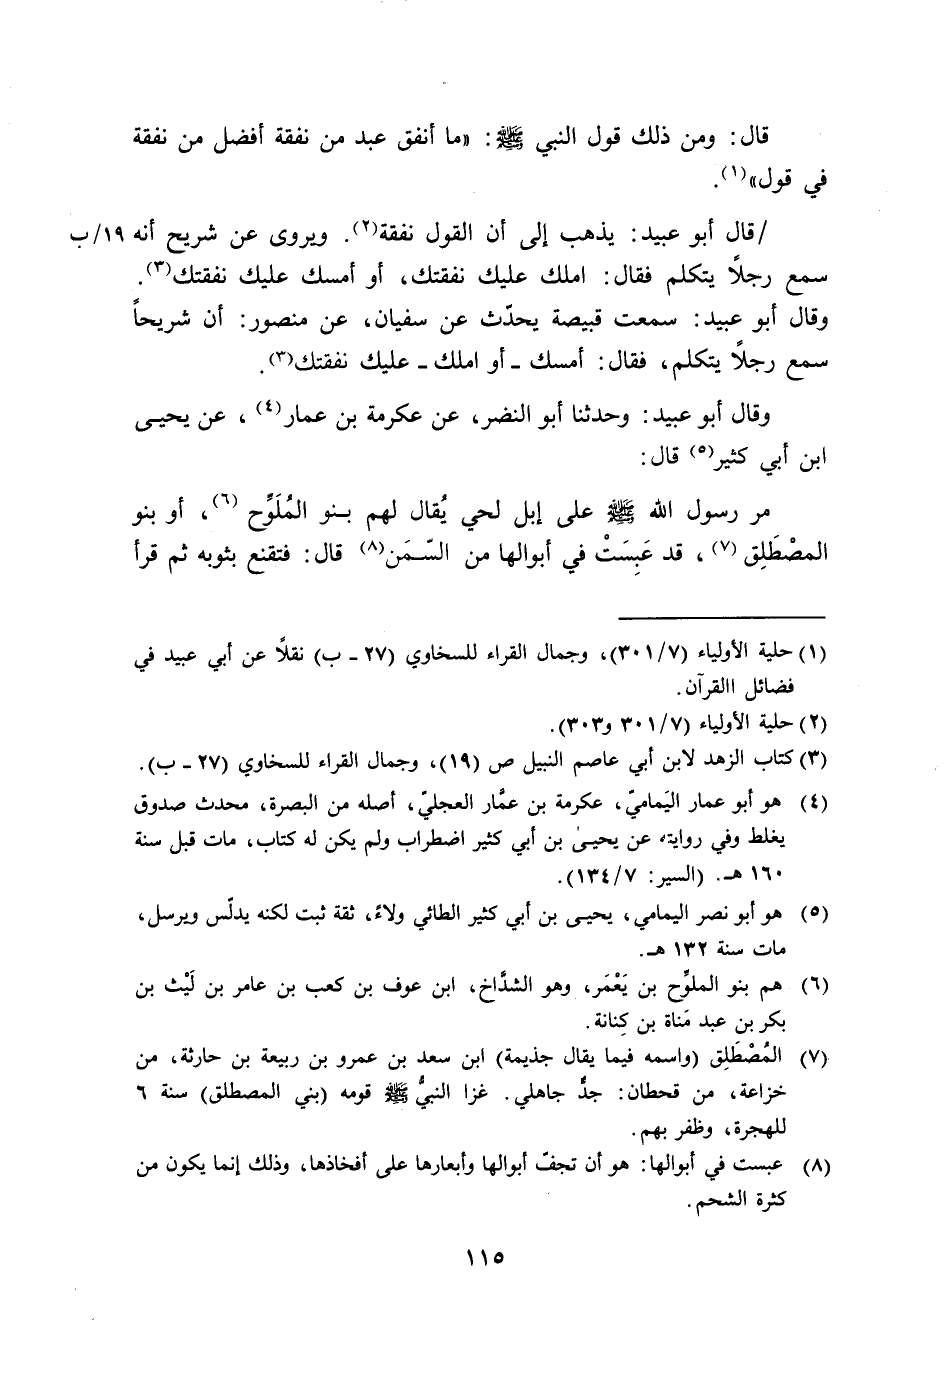 قال: ومن ذلك قول النبي ﷺ: «ما أنفق عبد من نفقة أفضل من نفقة
في قول»(١).
/قال أبو عبيد: يذهب إلى أن القول نفقة(٢). ويروى عن شريح أنه ١٩/ب
سمع رجلاً يتكلم فقال: املك عليك نفقتك، أو أمسك عليك نفقتك(٣).
وقال أبو عبيد: سمعت قبيصة يحدّث عن سفيان، عن منصور: أن شريحاً
سمع رجلاً يتكلم، فقال: أمسك ـ أو املك ـ عليك نفقتك(٣).
وقال أبو عبيد: وحدثنا أبو النضر، عن عكرمة بن عمار(٤)، عن يحيى
ابن أبي كثير(٥) قال:
مر رسول الله ﷺ على إبل لحي يُقال لهم بـنو المُلَوِّح(٦)، أو بنو
المصْطَلِق(٧)، قد عَبِسَتْ في أبوالها من السّـمَن(٨) قال: فتقنع بثوبه ثم قرأ
(١) حلية الأولياء (٣٠١/٧)، وجمال القراء للسخاوي (٢٧ ـ ب) نقلاً عن أبي عبيد في
فضائل االقرآن.
(٢) حلية الأولياء (٣٠١/٧ و٣٠٣).
(٣) كتاب الزهد لابن أبي عاصم النبيل ص (١٩)، وجمال القراء للسخاوي (٢٧ ـ ب).
(٤) هو أبو عمار اليَماميّ، عكرمة بن عمَّار العجليّ، أصله من البصرة، محدث صدوق
يغلط وفي روايته عن يحيىٰ بن أبي كثير اضطراب ولم يكن له كتاب، مات قبل سنة
١٦٠ هـ. (السير: ١٣٤/٧).
(٥) هو أبو نصر اليمامي، يحيـى بن أبي كثير الطائي ولاءً، ثقة ثبت لكنه يدلّس ويرسل،
مات سنة ١٣٢ هـ.
(٦) هم بنو الملوِّح بن يَعْمَر، وهو الشدَّاخ، ابن عوف بن كعب بن عامر بن لَيْث بن
بكر بن عبد مَناة بن كِنانة.
(٧) المُصْطَلِق (واسمه فيما يقال جذيمة) ابن سعد بن عمرو بن ربيعة بن حارثة، من
خزاعة، من قحطان: جدٌّ جاهلي. غزا النبيُّ ﷺ قومه (بني المصطلق) سنة ٦
للهجرة، وظفر بهم.
(٨) عبست في أبوالها: هو أن تجفّ أبوالها وأبعارها على أفخاذها، وذلك إنما يكون من
كثرة الشحم.
١١٥